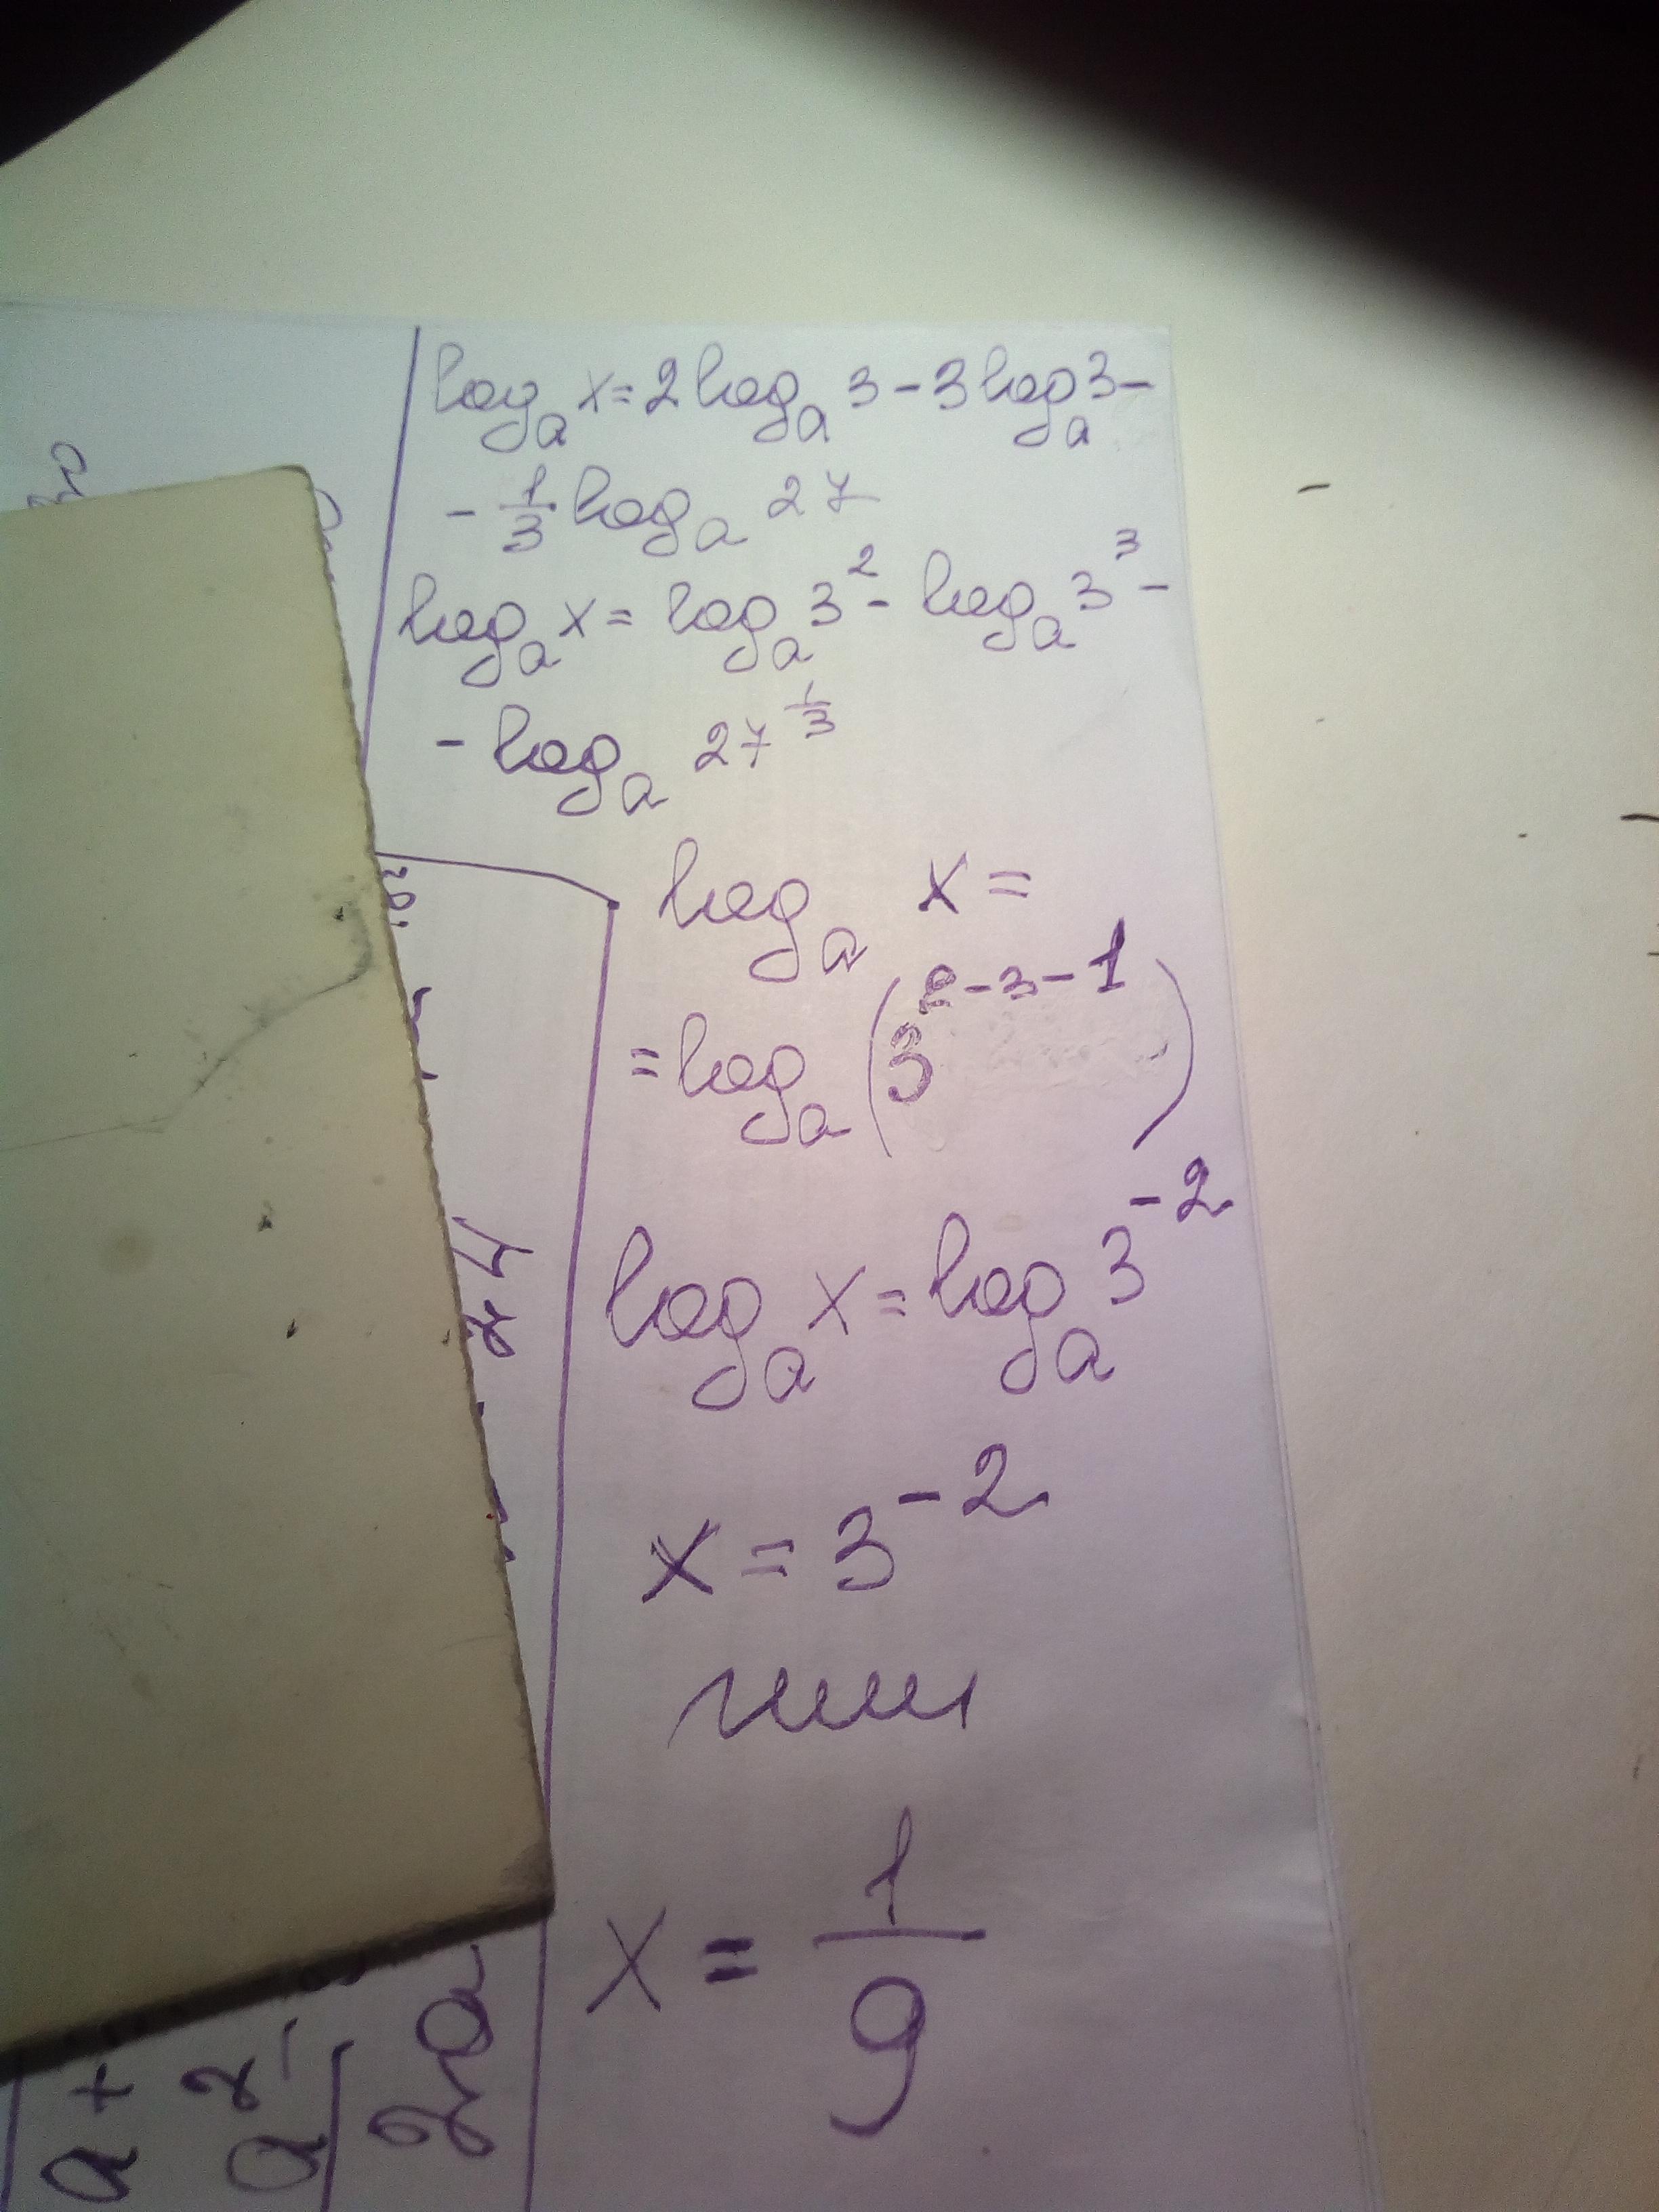 logₐ x = 2 logₐ 3 - 3 logₐ 3 -
- 1/3 logₐ 27
logₐ x = logₐ 3² - logₐ 3³ -
- logₐ 27^(1/3)
logₐ x =
= logₐ (3^(2-3-1))
logₐ x = logₐ 3⁻²
x = 3⁻²
или
x = 1/9